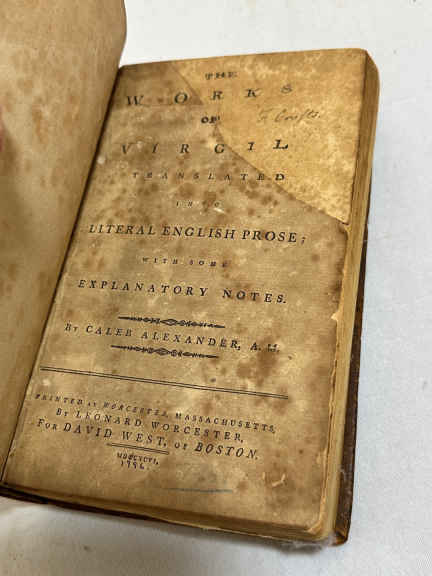 THE
WORKS
OF
VIRGIL
TRANSLATED
INTO
LITERAL ENGLISH PROSE;
WITH SOME
EXPLANATORY NOTES.
BY CALEB ALEXANDER, A. M.
PRINTED AT WORCESTER, MASSACHUSETTS,
BY LEONARD WORCESTER,
FOR DAVID WEST, OF BOSTON.
MDCCXCVI,
1796.